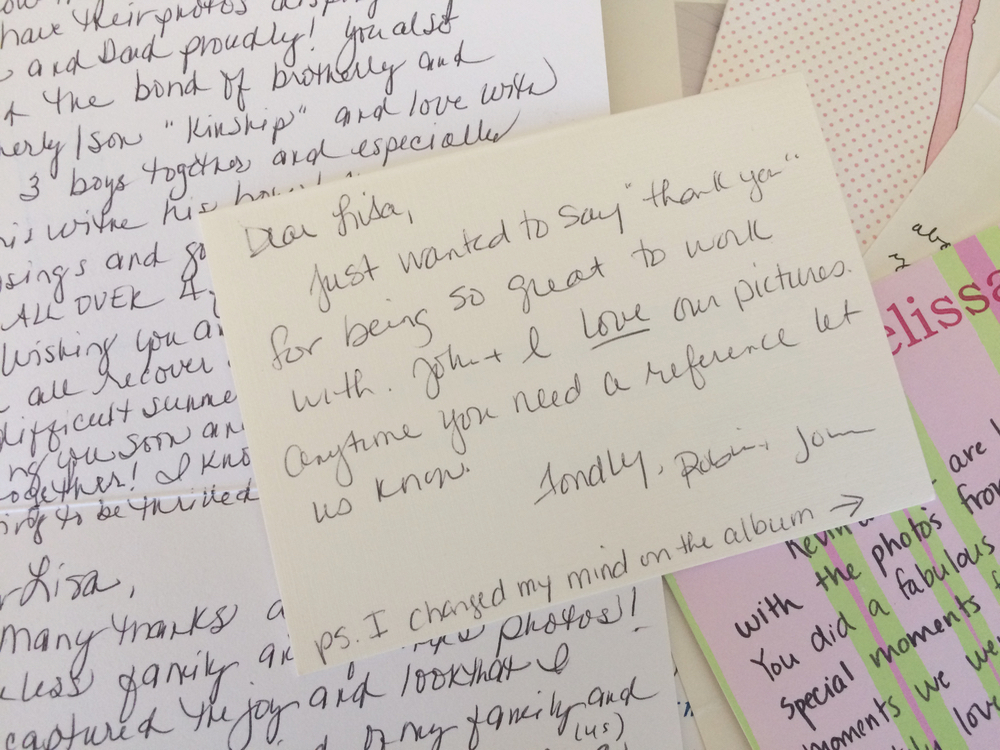 have their photos
and Dad proudly! you also
the bond of brotherly and
/son "kinship" and love with
3 boys together and especially
his
and
ALL OVER
Wishing you
all recover
difficult
you soon
together! I
to be thrilled
Dear Lisa,
Just wanted to say "thank you"
for being so great to work
with. John + I love our pictures.
Anytime you need a reference let
us know.
Fondly, Robin, John
ps. I changed my mind on the album →
Lisa,
Many thanks
family
photos!
captured the joy and look that I
of my family and
(us)
elissa
are
Kevin
with the photos from
You did a fabulous
special moments
moments we